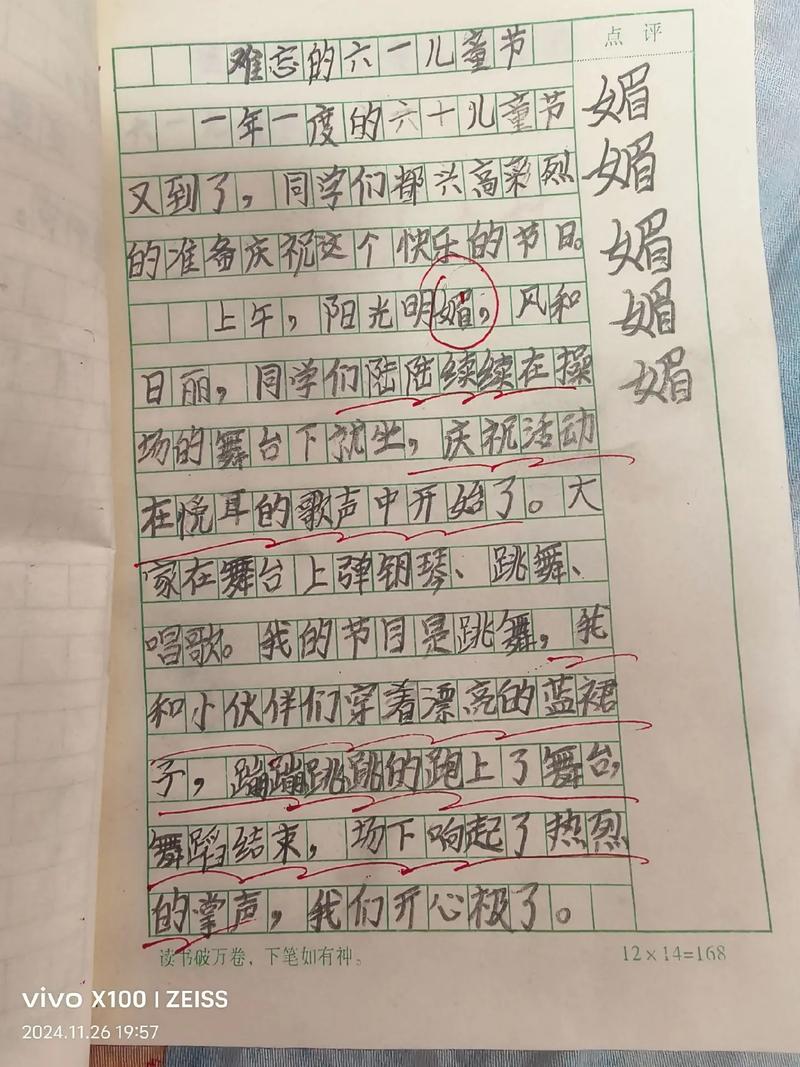 难忘的六一儿童节
点评
一年一度的六十儿童节
又到了，同学们都兴高彩烈
的准备庆祝这个快乐的节日。
上午，阳光明媚，风和
日丽，同学们陆陆续续在操
场的舞台下就坐，庆祝活动
在悦耳的歌声中开始了。大
家在舞台上弹钢琴、跳舞、
唱歌。我的节目是跳舞，我
和小伙伴们穿着漂亮的蓝裙
子，蹦蹦跳跳的跑上了舞台，
舞蹈结束，场下响起了热烈
的掌声，我们开心极了。
媚
媚
媚
媚
媚
读书破万卷，下笔如有神。
12×14=168
vivo X100 | ZEISS
2024.11.26 19:57